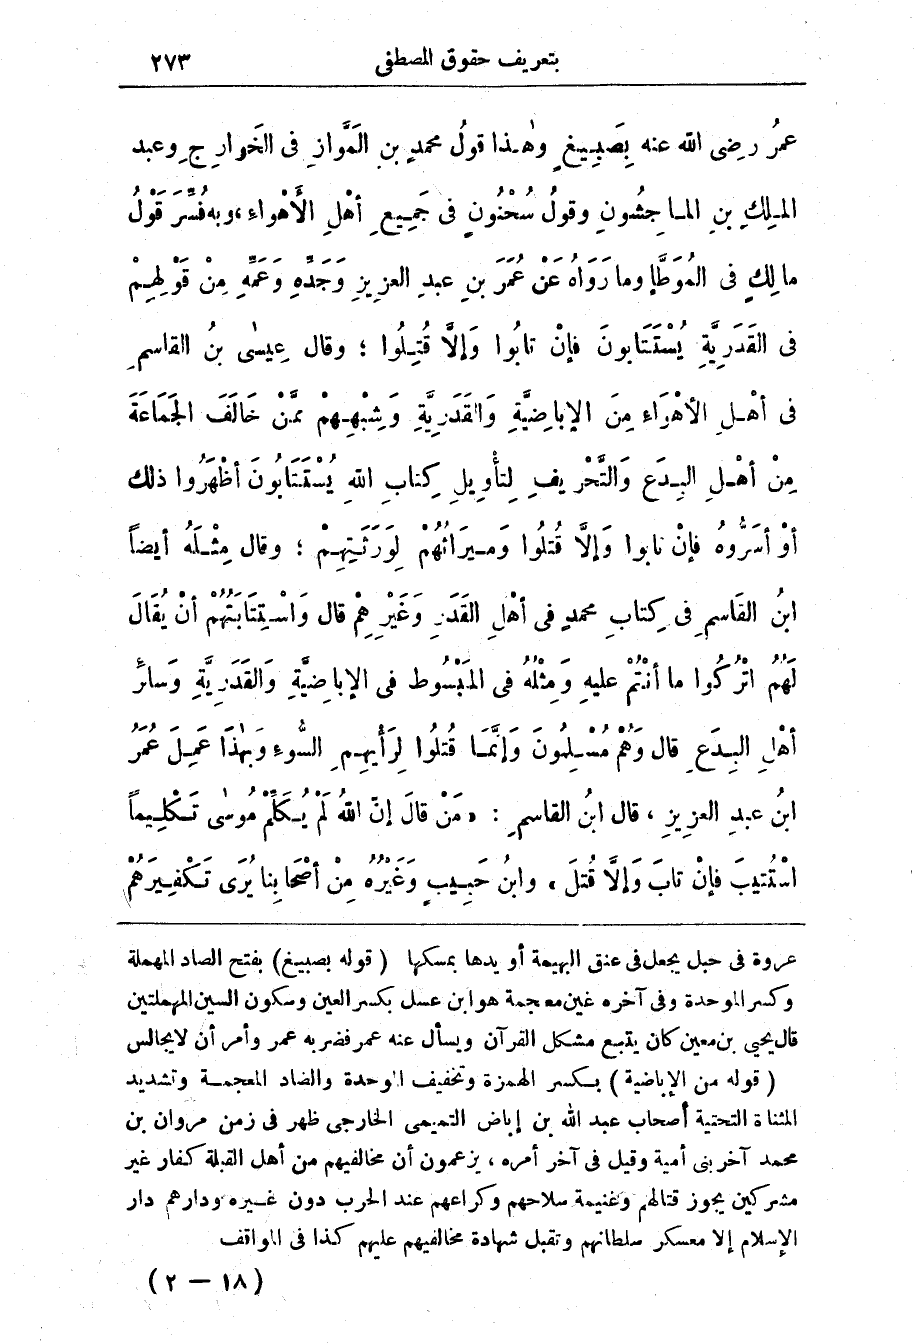 بتعريف حقوق المصطفى ٢٧٣
عمرُ رضى الله عنه بِصَبِيغٍ وهٰذا قولُ محمدِ بنِ المَوَّازِ فى الخَوارِجِ وعبد
الملِكِ بنِ الماجِشُونِ وقولُ سُحْنُونٍ فى جَمِيعِ أهْلِ الأَهْواءِ، وبه فُسِّرَ قَوْلُ
مالِكٍ فى المُوَطَّإ وما رَوَاهُ عَنْ عُمَرَ بنِ عبدِ العزيزِ وَجَدِّهِ وَعَمِّهِ مِنْ قَوْلِهِمْ
فى القَدَرِيَّةِ يُسْتَتَابونَ فإنْ تابُوا وَإلَّا قُتِلُوا ؛ وقال عِيسٰى بنُ القاسمِ
فى أهْلِ الأهْوَاءِ مِنَ الإباضِيَّةِ وَالقَدَرِيَّةِ وَشِبْهِهِمْ مَّمنْ خَالَفَ الجَمَاعَةَ
مِنْ أهْلِ البِدَعِ وَالتَّحْرِيفِ لِتأْوِيلِ كِتابِ اللهِ يُسْتَتَابُونَ أظْهَرُوا ذلك
أوْ أسَرُّوهُ فإنْ تابوا وَإلَّا قُتلُوا وَمِيرَاثُهُمْ لِوَرَثَتِهِمْ ؛ وقال مِثْلَهُ أيضاً
ابنُ القَاسمِ فى كِتابِ محمدٍ فى أهْلِ القَدَرِ وَغَيْرِهِمْ قال وَاسْتِتَابَتُهُمْ أنْ يُقَالَ
لَهُمُ اتْرُكُوا ما أنْتُمْ عليهِ وَمِثْلُهُ فى المَبْسُوط فى الإباضِيَّةِ وَالقَدَرِيَّةِ وَسائرُ
أهْلِ البِدَعِ قال وَهُمْ مُسْلِمُونَ وَإنَّمَا قُتلُوا لِرَأْيِهِمِ السُّوءِ وَبِهٰذَا عَمِلَ عُمَرُ
ابنُ عبدِ العزيزِ ، قال ابنُ القاسمِ : «مَنْ قالَ إنَّ اللهَ لَمْ يُكَلِّمْ مُوسٰى تَكْلِيماً
اسْتُتيبَ فإنْ تابَ وَإلَّا قُتلَ، وابنُ حَبِيبٍ وَغَيْرُهُ مِنْ أصْحَابِنا يُرَى تَكْفِيرَهُمْ
عروة فى حبل يجعل فى عنق البهيمة أو يدها يمسكها (قوله بصبيغ) بفتح الصاد المهملة
وكسر الموحدة وفى آخره غين معجمة هو ابن عسل بكسر العين وسكون السين المهملتين
قال يحيى بن معين كان يتبع مشكل القرآن ويسأل عنه عمر فضربه عمر وأمر أن لا يجالس
(قوله من الإباضية) بكسر الهمزة وتخفيف الموحدة والضاد المعجمة وتشديد
المثناة التحتية أصحاب عبد الله بن إباض التميمى الخارجى ظهر فى زمن مروان بن
محمد آخر بنى أمية وقيل فى آخر أمره ، يزعمون أن مخالفيهم من أهل القبلة كفار غير
مشركين يجوز قتالهم وغنيمة سلاحهم وكراعهم عند الحرب دون غيره ودارهم دار
الإسلام إلا معسكر سلطانهم وتقبل شهادة مخالفيهم عليهم كذا فى المواقف
(١٨ — ٢)